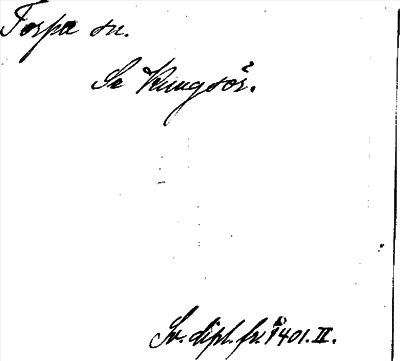 Torpa sn.
Se Kungsör.
Sv. dipl. fr. 1401. II.